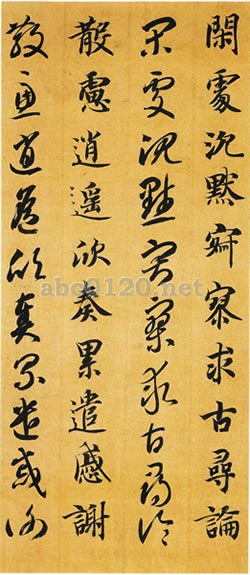 閑處沉默寂寥求古尋論
閑處沉默寂寥求古尋論
散慮逍遥欣奏累遣慼謝
散慮逍遥欣奏累遣慼謝